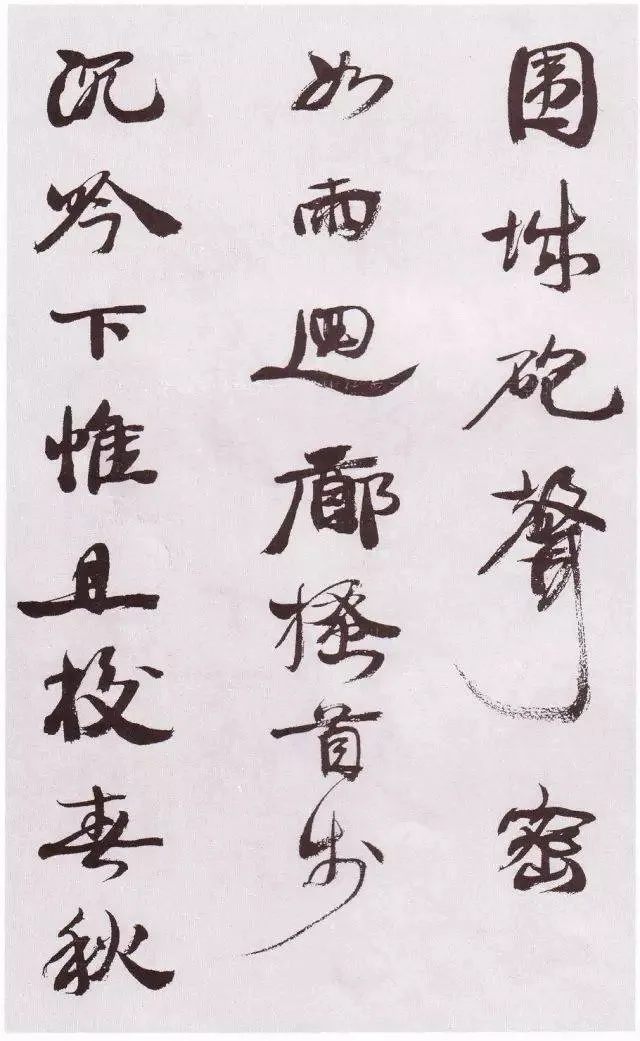 围城砲聲密
如雨迴廊搔首步
沉吟下帷且校春秋